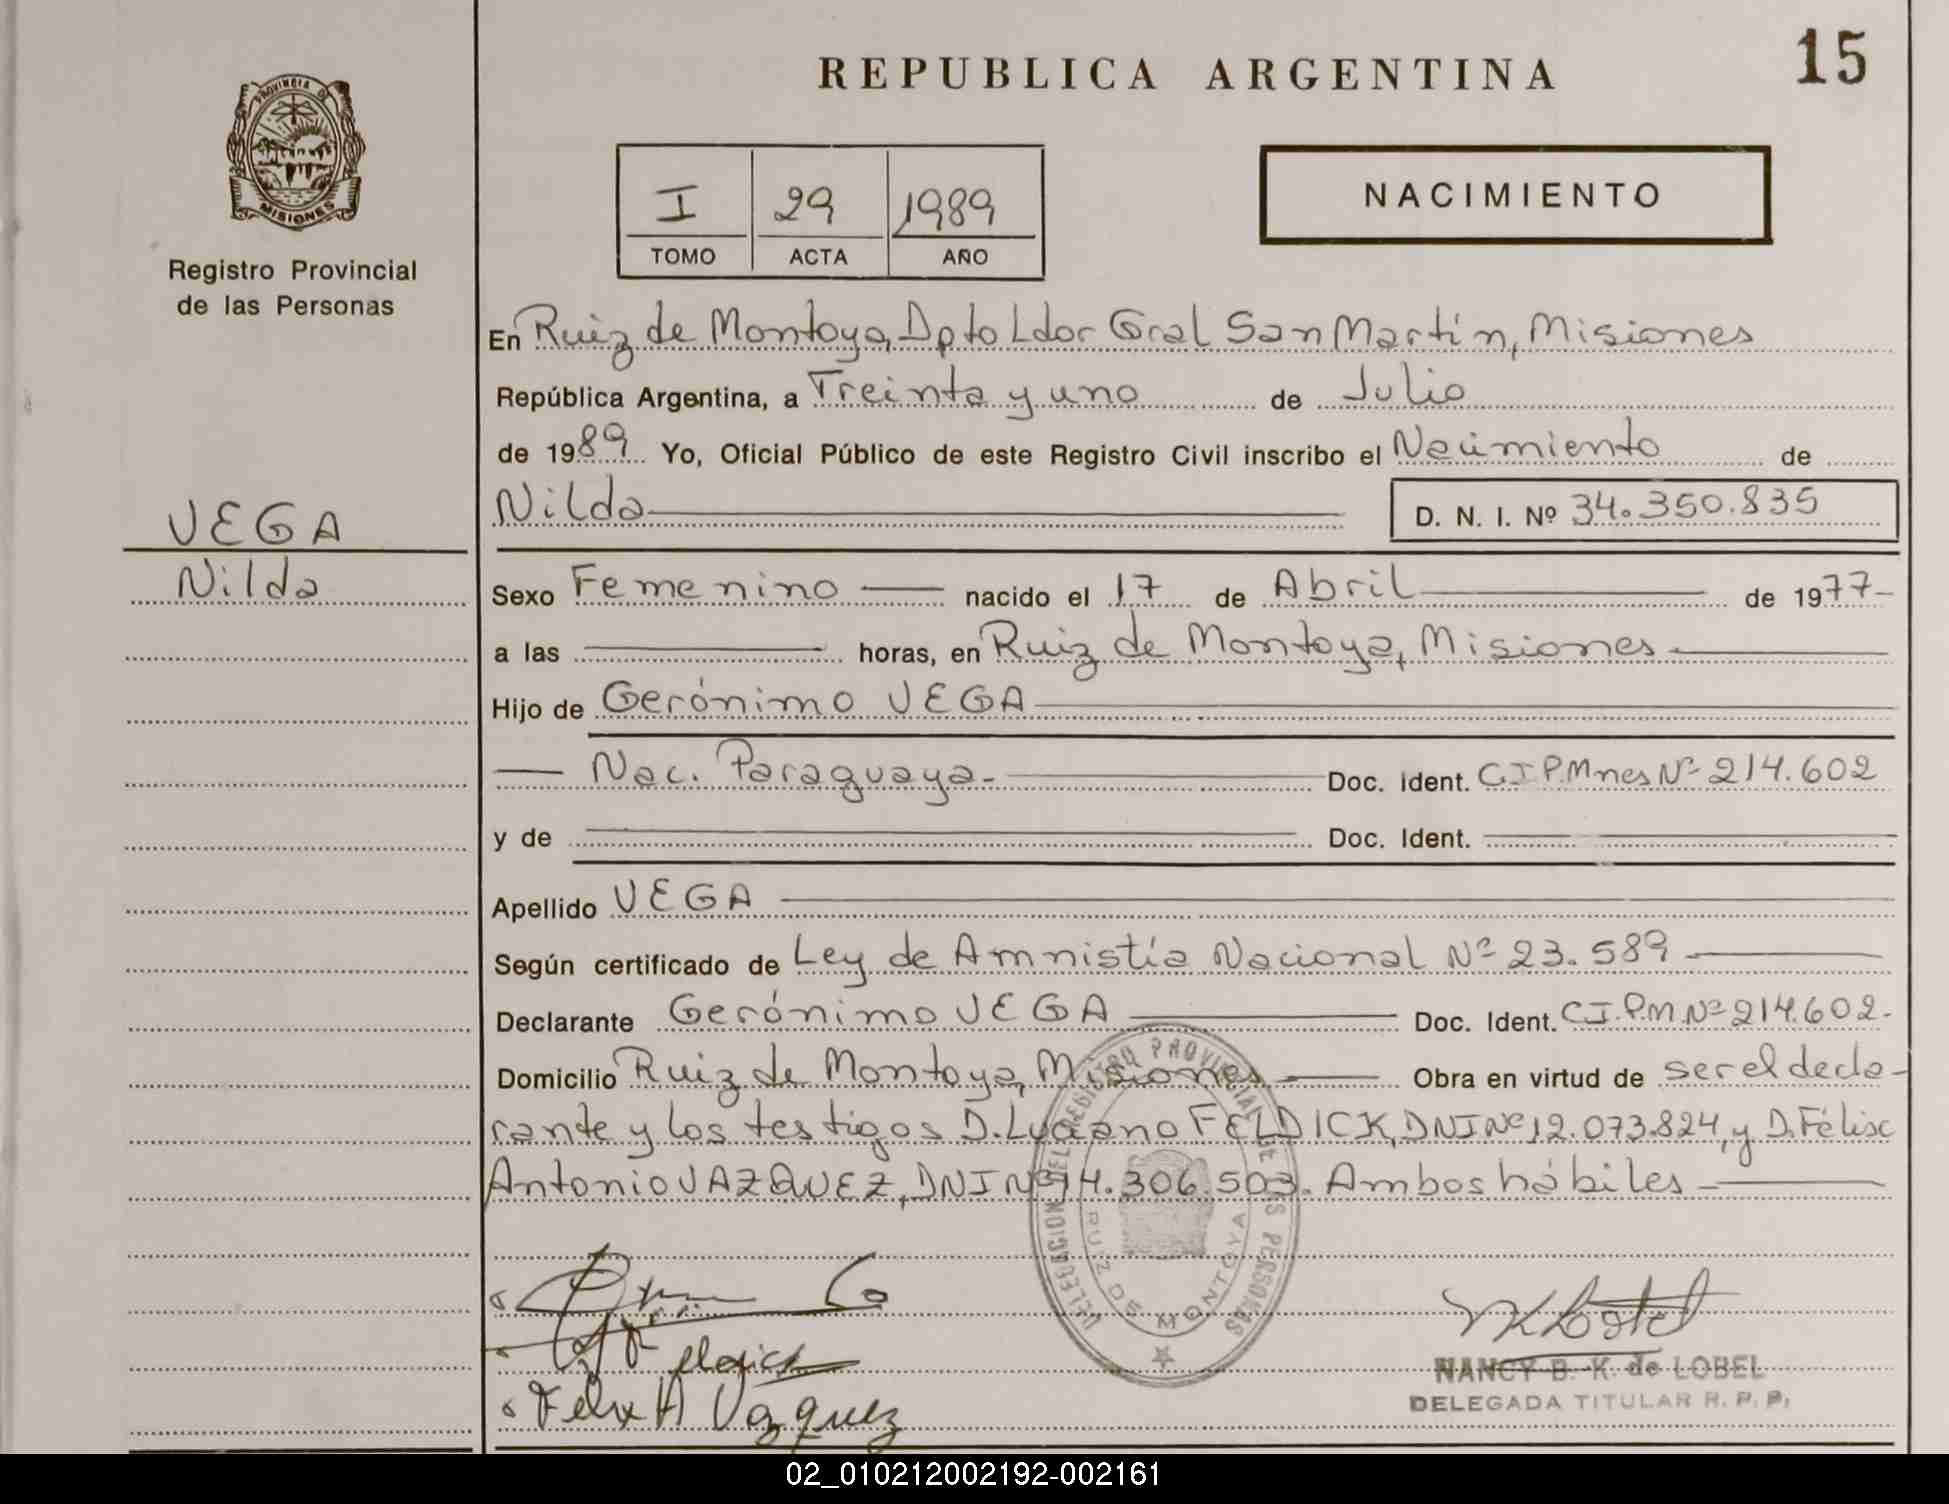 REPUBLICA ARGENTINA
15
PROVINCIA DE
MISIONES
Registro Provincial
de las Personas
I 29 1989
TOMO ACTA AÑO
NACIMIENTO
En Ruiz de Montoya, Dpto Ldor Gral San Martín, Misiones
República Argentina, a Treinta y uno de Julio
de 1989 Yo, Oficial Público de este Registro Civil inscribo el Nacimiento de
Nilda
D. N. I. Nº 34.350.835
VEGA
Nilda
Sexo Femenino nacido el 17 de Abril de 1977-
a las horas, en Ruiz de Montoya, Misiones
Hijo de Gerónimo VEGA
Nac. Paraguaya- Doc. Ident. C.I.P.Mnes Nº 214.602
y de Doc. Ident.
Apellido VEGA
Según certificado de Ley de Amnistía Nacional Nº 23.589
Declarante Gerónimo VEGA Doc. Ident. C.I.P.M.Nº 214.602-
Domicilio Ruiz de Montoya, Misiones Obra en virtud de ser el decla-
rante y los testigos D. Luciano FELDICK, DNI Nº 12.073.824, y D. Félix
Antonio VAZQUEZ, DNI Nº 14.306.503. Ambos hábiles
DELEGACION DEL REGISTRO PROVINCIAL DE LAS PERSONAS
RUIZ DE MONTOYA
Felix A Vazquez
NANCY B. K. de LOBEL
DELEGADA TITULAR R. P. P.
02_010212002192-002161